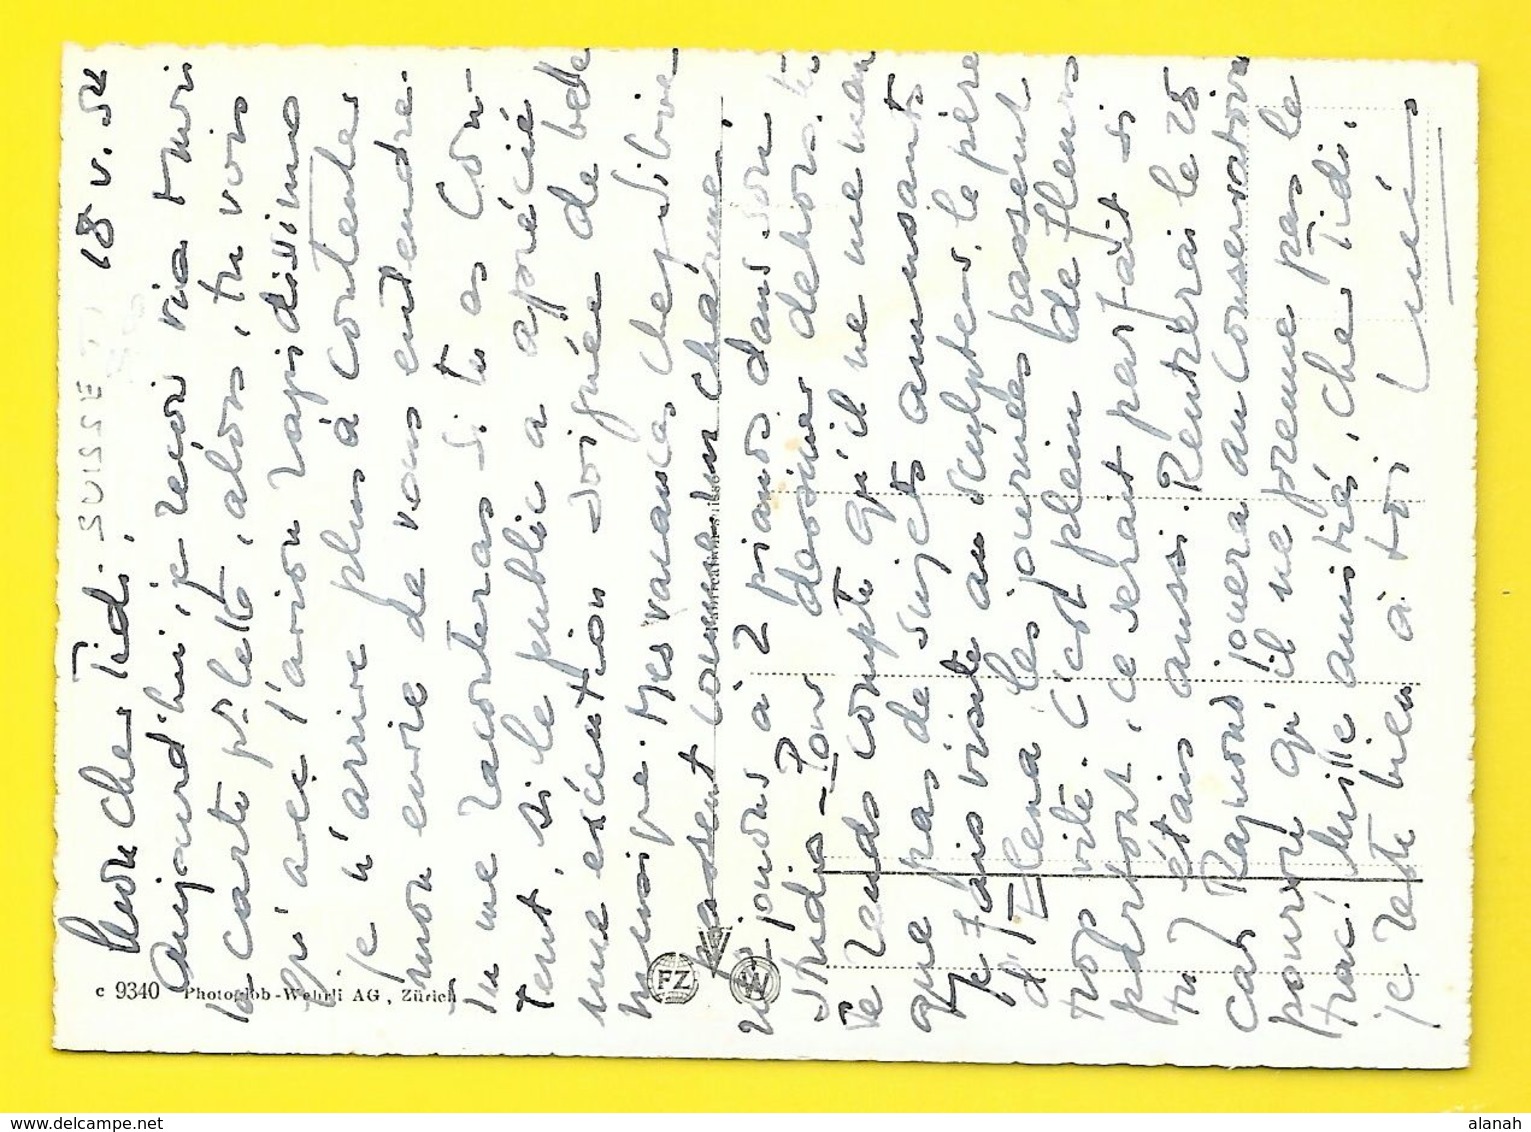 18 V. 54
Mon cher Tidi,
Aujourd'hui je reçois via
la carte pr. letto, alors, tu vois
qu'avec l'avion rapidissimo
je n'arrive plus à contenter
mon envie de vous entendre.
Tu me raconteras si tu es con-
tent, si le public a apprécié
une exécution soignée de belle
musique. Mes vacances chez Silvie
passent comme un charme,
ns jouons à 2 pianos dans son
studio - Pour dessiner dehors, tu
te rends compte qu'il ne me man
que pas de sujets amusants
Je fais visite au sculpteur, le père
d'Elena les journées passent
trop vite. C'est plein de fleurs
partout, ce serait parfait si
tu étais aussi. Rentrerai le 25
car Raymond jouera au Conservatoire
pourvu qu'il ne prenne pas le
trac! Mille amitiés, cher Tidi,
je reste bien à toi
c 9340 Photoglob-Wehrli AG, Zürich
FZ
W
SUISSE
alanah